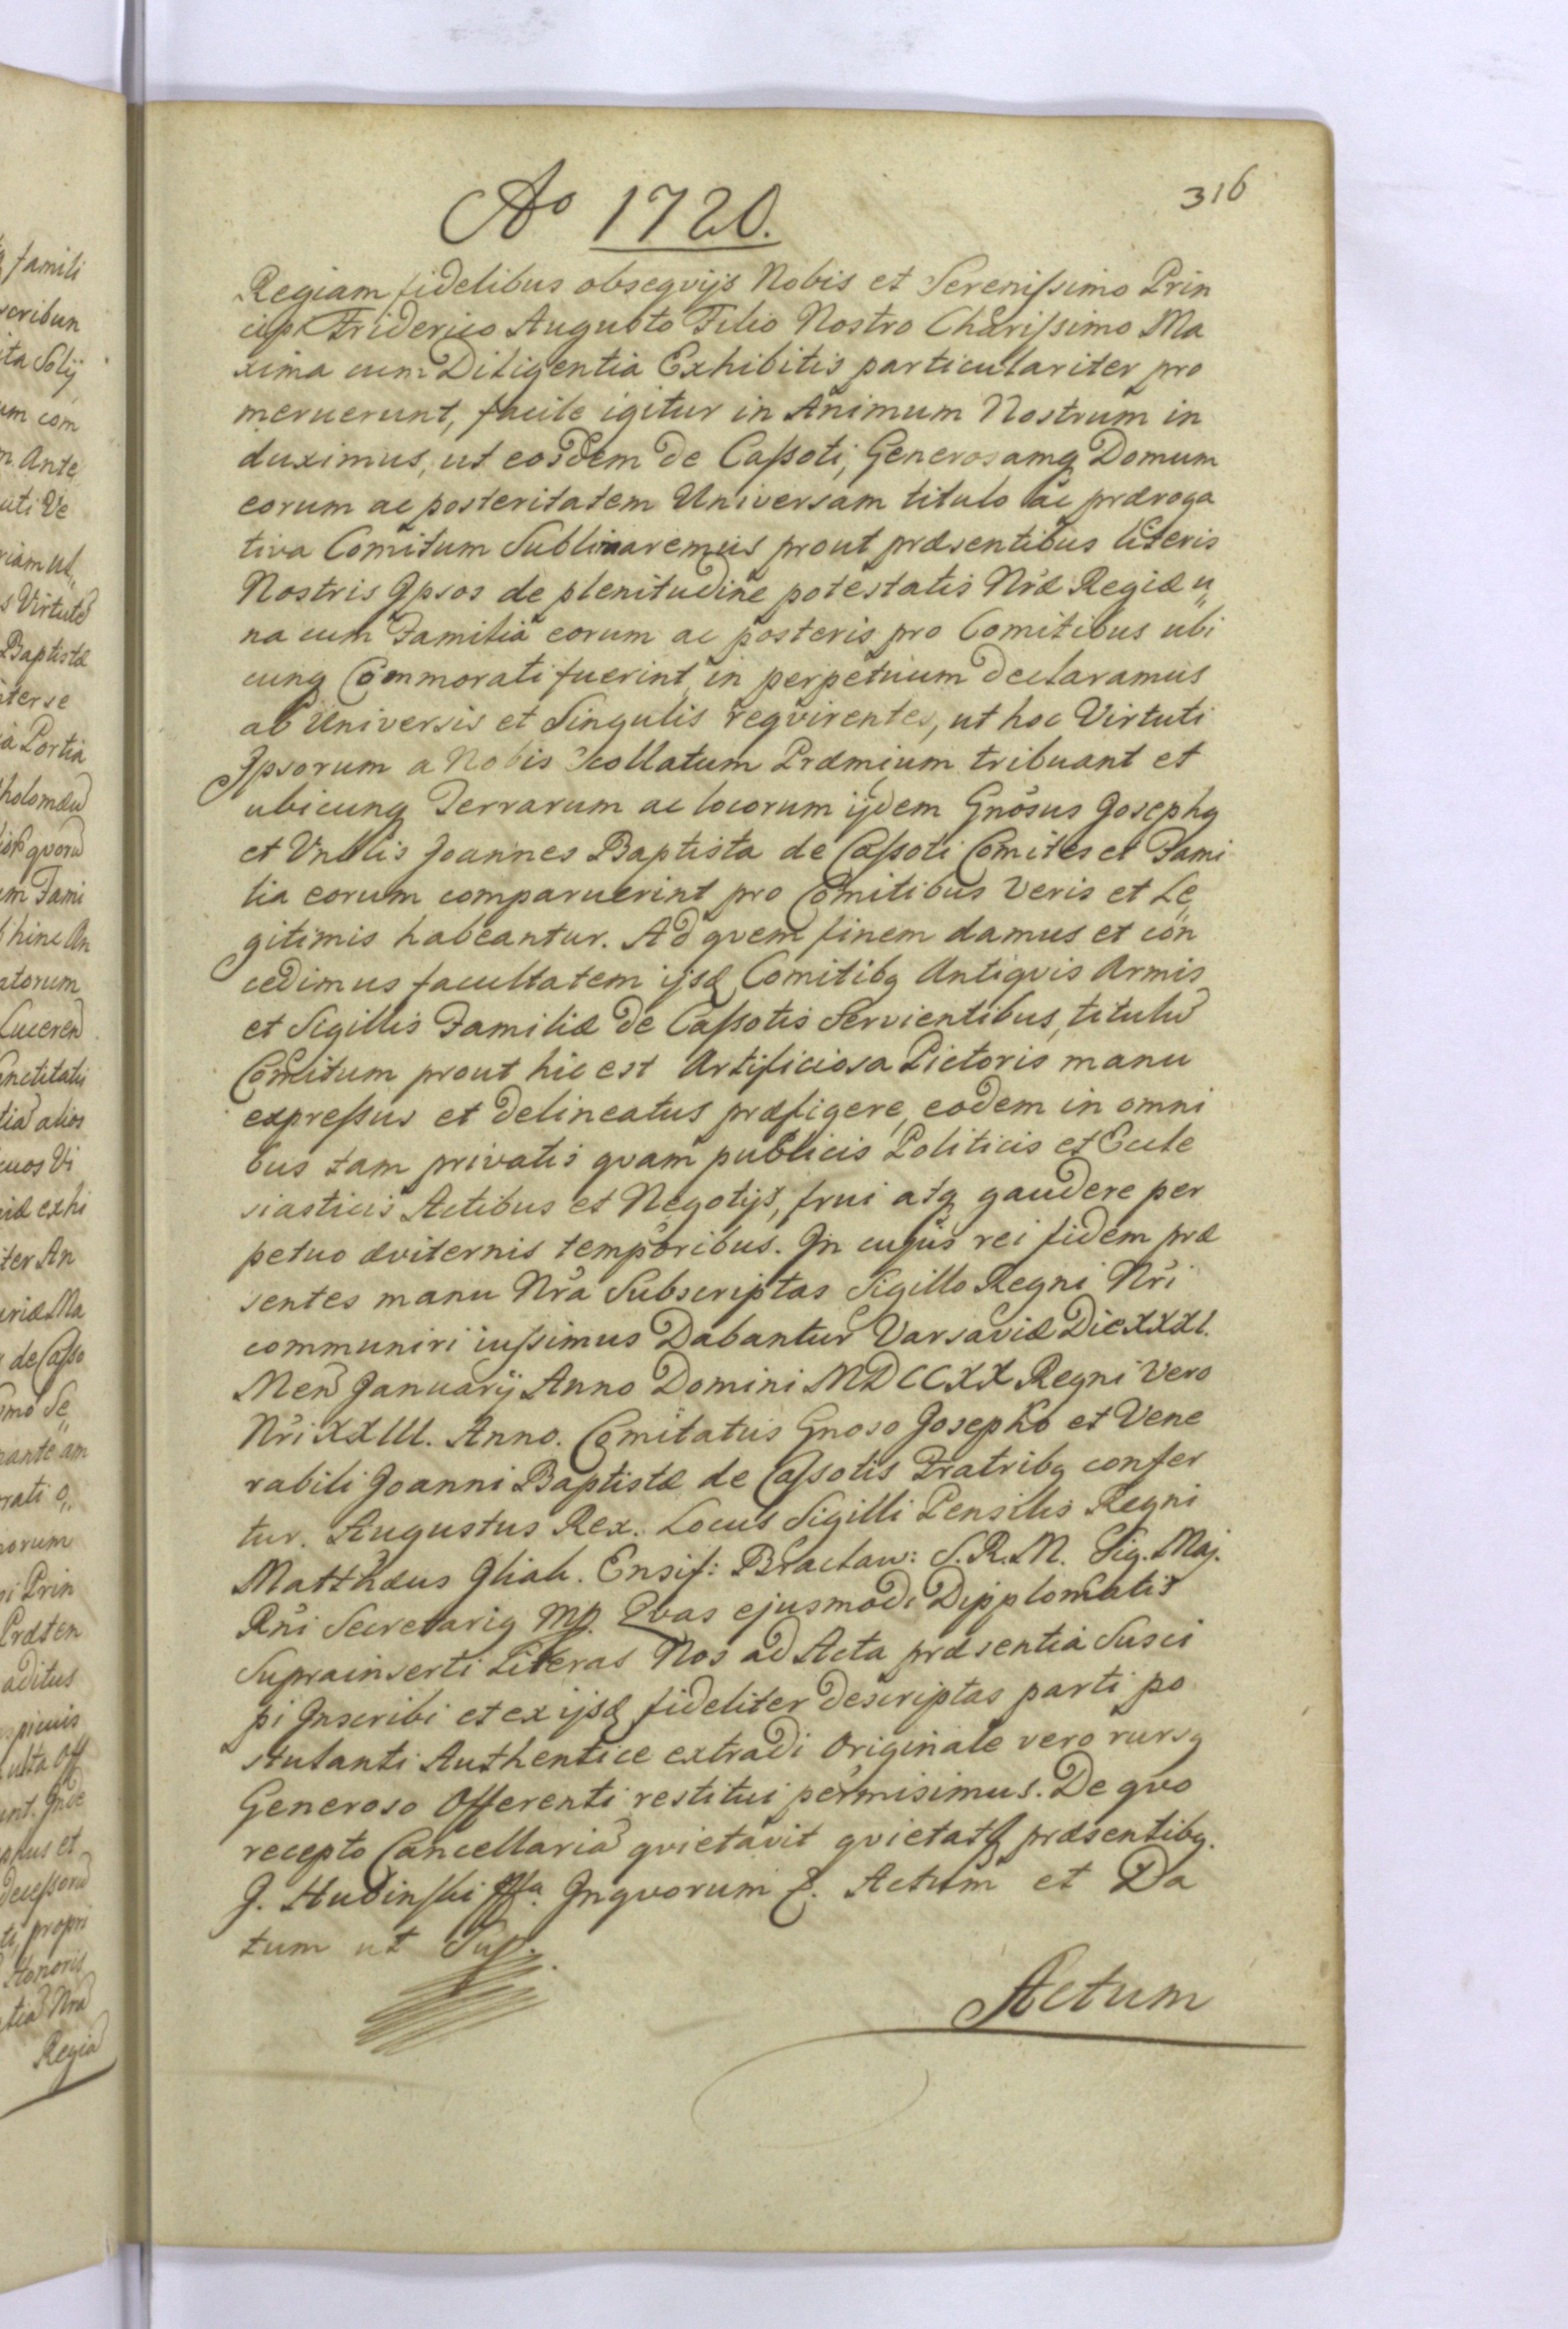 316
Ao 1720.
Regiam fidelibus obseqvijs Nobis et Serenissimo Prin
cipi Friderico Augusto Filio Nostro Charissimo Ma
xima cum Diligentia Exhibitis particulariter pro
meruerunt, facile igitur in Animum Nostrum in
duximus, ut eosdem de Cassoti, Generosamq Domum
eorum ac posteritatem Universam titulo ac præroga
tiva Comitum Sublimaremus prout præsentibus literis
Nostris Ipsos de plenitudine potestatis Nræ Regiæ u„
na cum Familia eorum ac posteris pro Comitibus ubi
cunq Commorati fuerint in perpetuum declaramus
ab Universis et Singulis reqvirentes, ut hoc Virtuti
Ipsorum a Nobis collatum Præmium tribuant et
ubicunq Terrarum ac locorum ijdem Gnosus Josephq
et Vnblis Joannes Baptista de Cassoti Comites et Fami
lia eorum comparuerint pro Comitibus Veris et Le„
gitimis habeantur. Ad qvem finem damus et con
cedimus facultatem ijsd Comitibq Antiqvis Armis
et Sigillis Familiæ de Cassotis Servientibus, titulu
Comitum prout hic est Artificiosa Pictoris manu
expressus et delineatus præfigere, eodem in omni
bus tam privatis qvam publicis Politicis et Eccle
siasticis Actibus et Negotijs, frui atq gaudere per
petuo æviternis temporibus. In cujus rei fidem præ
sentes manu Nra Subscriptas Sigillo Regni Nri
communiri iussimus Dabantur Varsaviæ Die XXXI.
Men Januarij Anno Domini MDCCXX Regni Vero
Nri XXIII. Anno. Comitatus Gnoso Josepho et Vene
rabili Joanni Baptistæ de Cassotis Fratribq confer
tur. Augustus Rex. Locus Sigilli Pensilis Regni
Matthæus Gliah. Ensif: Braclaw: S.R.M. Sig. Maj.
Rni Secretariq Mp. Qvas ejusmodi Dipplomatis
Suprainserti Literas Nos ad Acta præsentia Susci
pi Inscribi et ex ijsd fideliter descriptas parti po
stulanti Authentice extradi Originale vero rursq
Generoso Offerenti restitui permisimus. De qvo
recepto Cancellaria qvietavit qvietatq præsentibq.
J. Hudinski Inqvorum Actum et Da
tum ut Sup.
Actum